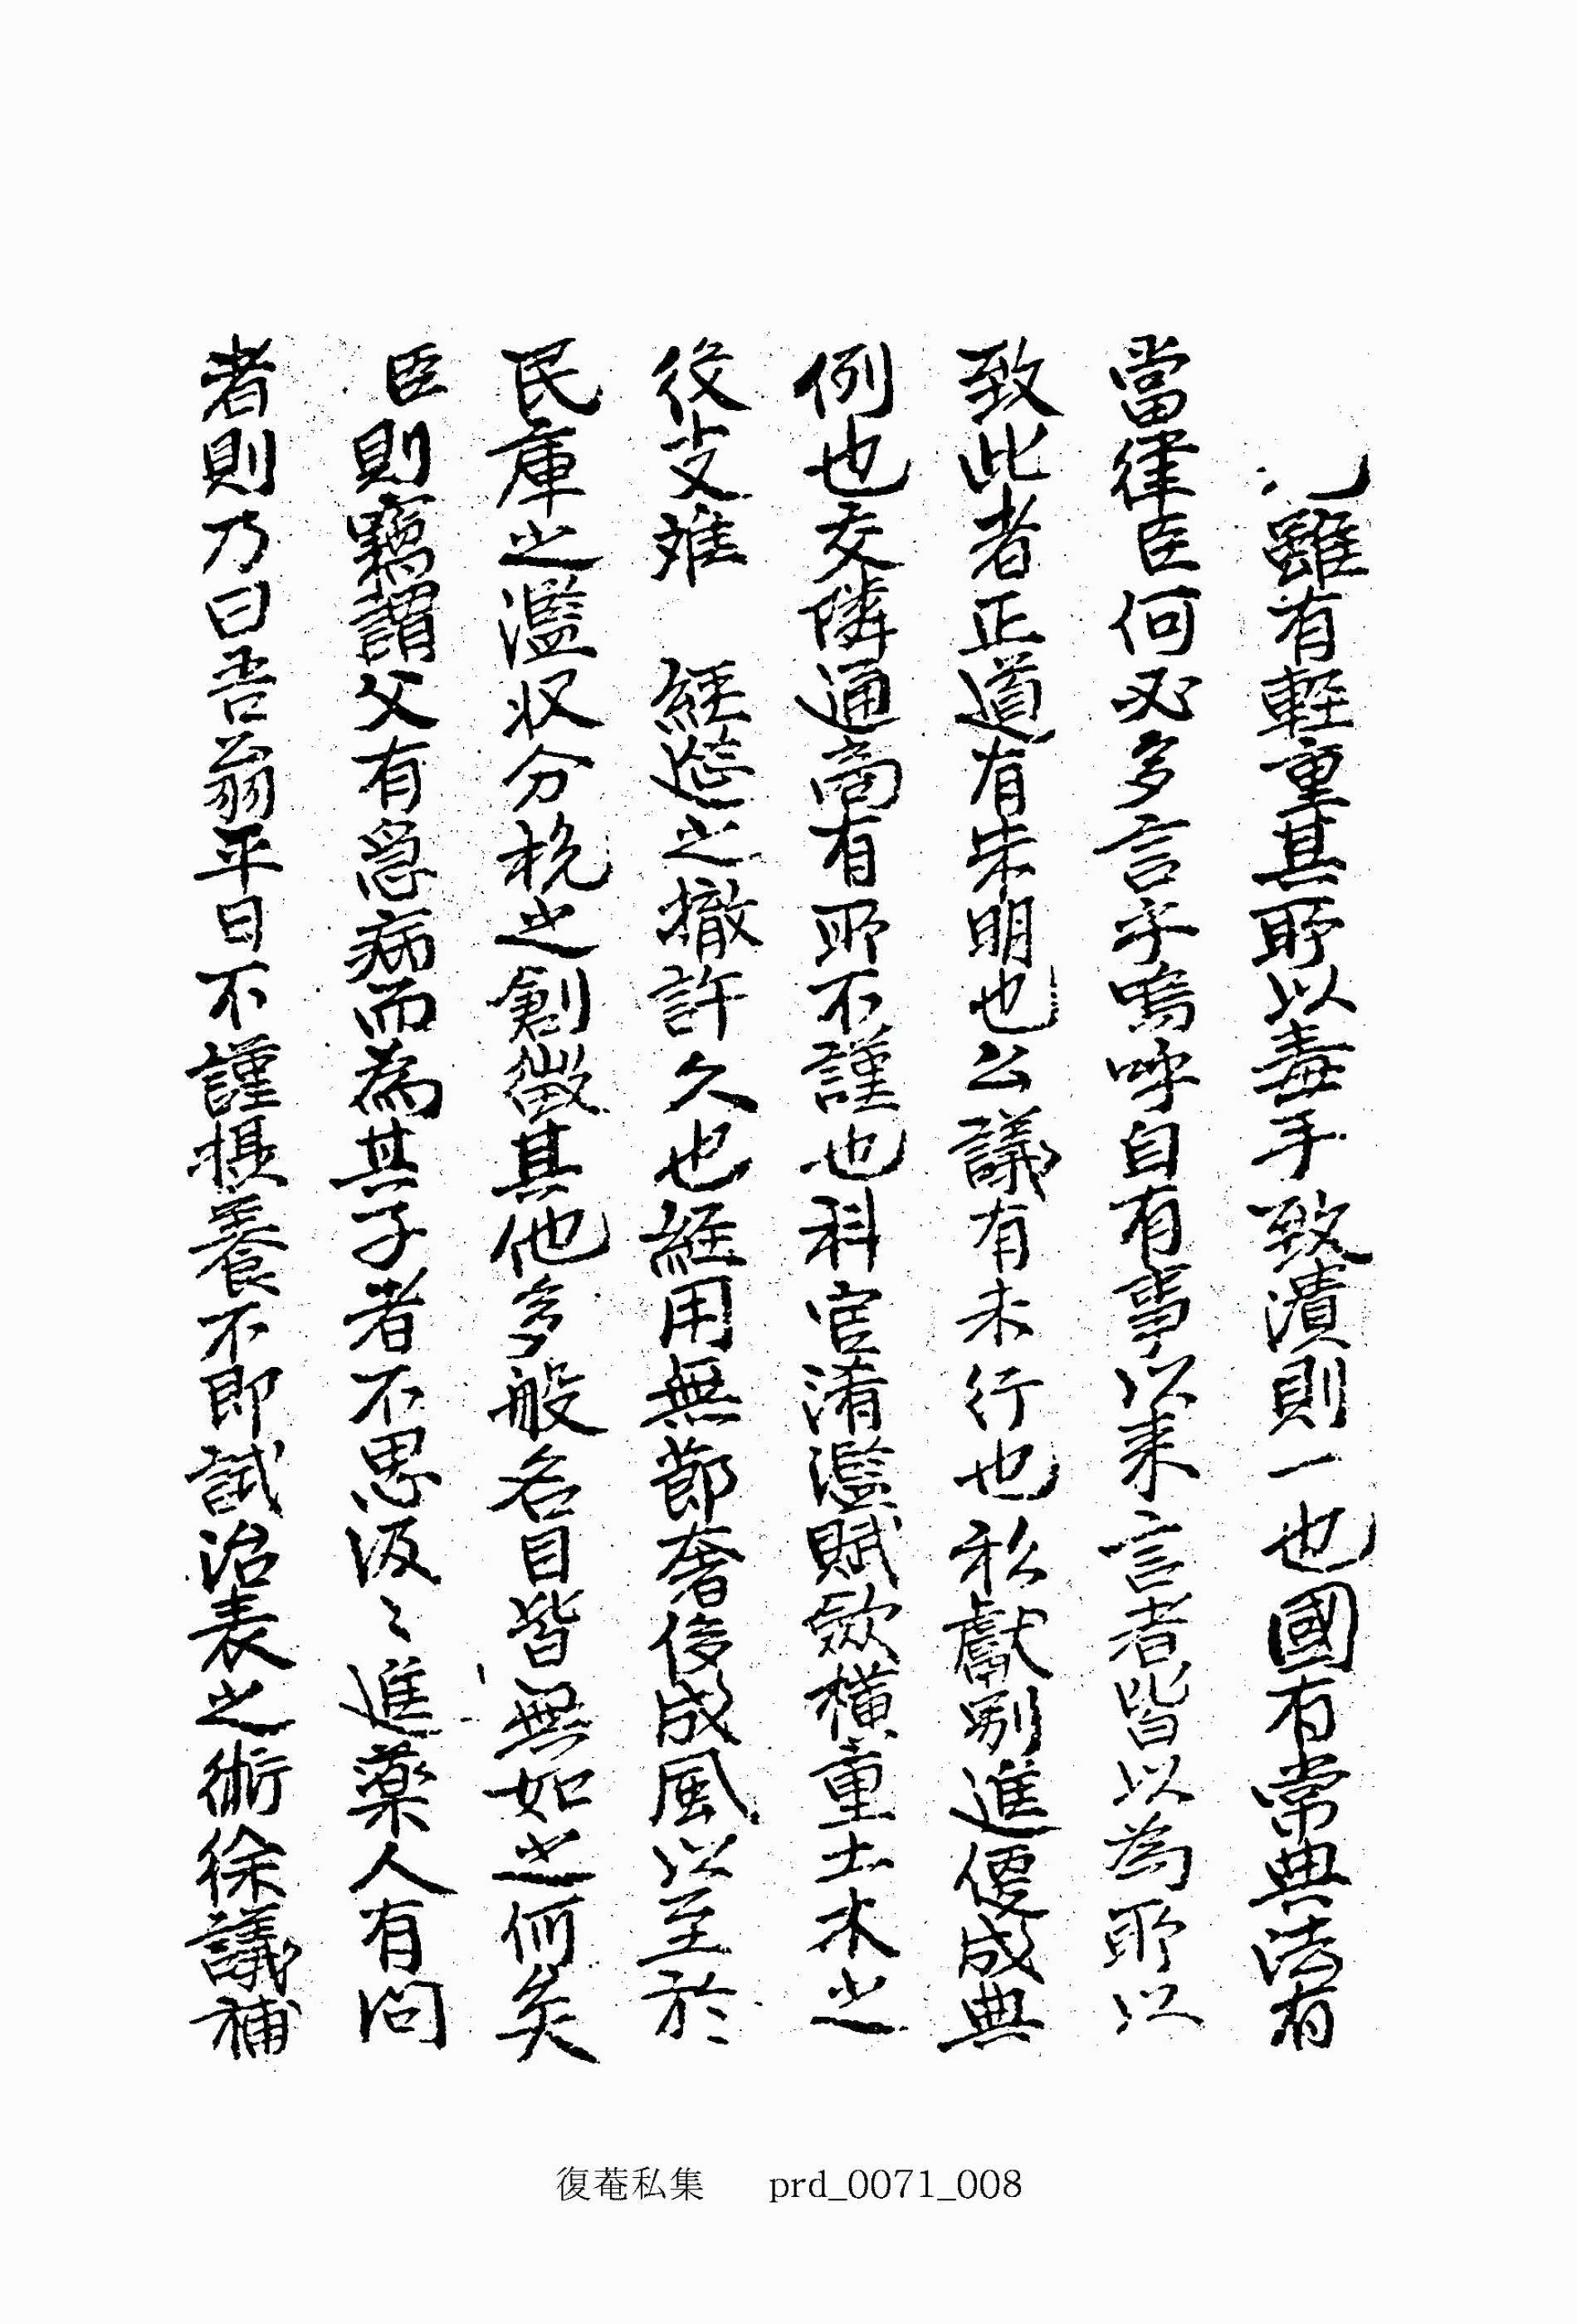 雖有輕重其所以毒手致潰則一也國有常典法有
當律臣何必多言乎嗚呼自有事以来言者皆以為所以
致此者正道有未明也公議有未行也私獻別進便成典
例也交隣通商有所不謹也科宦淆濫賦斂橫重土木之
役支難 經筵之撤許久也經用無節奢侈成風以至於
民庫之濫収分稅之創徵其他多般名目皆無如之何矣
臣則竊謂父有急病而為其子者不思汲〻進藥人有問
者則乃曰吾翁平日不謹摂養不即試治表之術徐議補
復菴私集 prd_0071_008